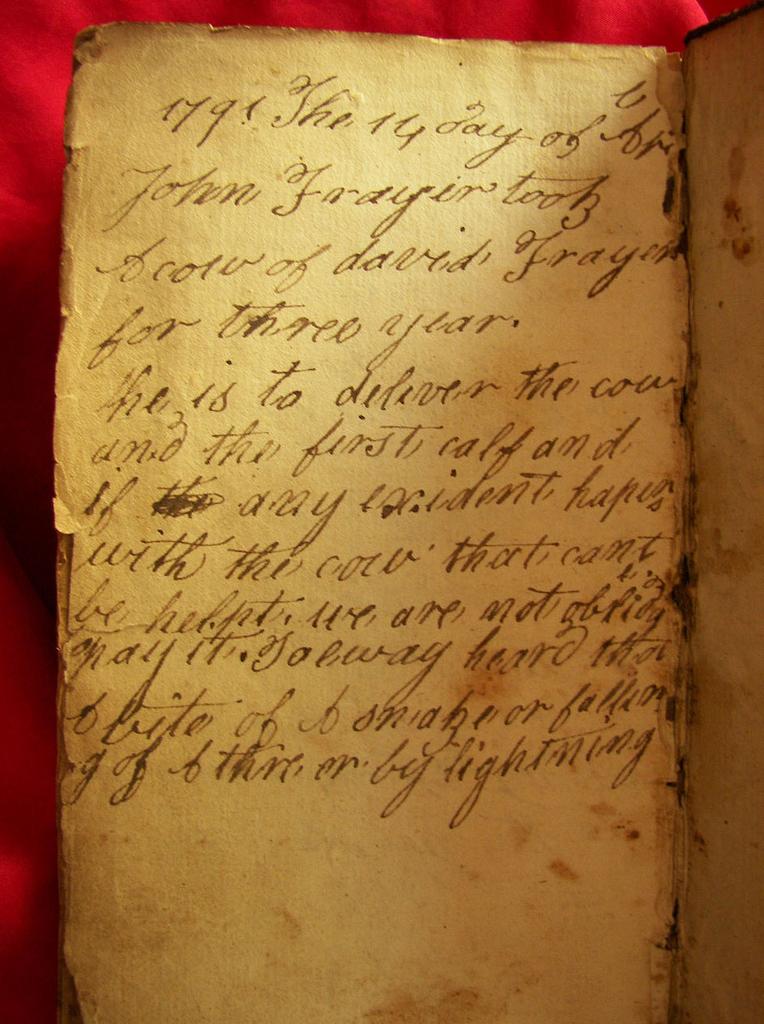 1791 The 14 day of Apr
l
John Frayer took
A cow of david Frayer
for three year.
he is to deliver the cow
and the first calf and
if the any exident hapens
with the cow that cant
be helpt. we are not oblidg
to
pay it. I aeway heard that
A bite of A snake or fallin
g of A thre or by lightning